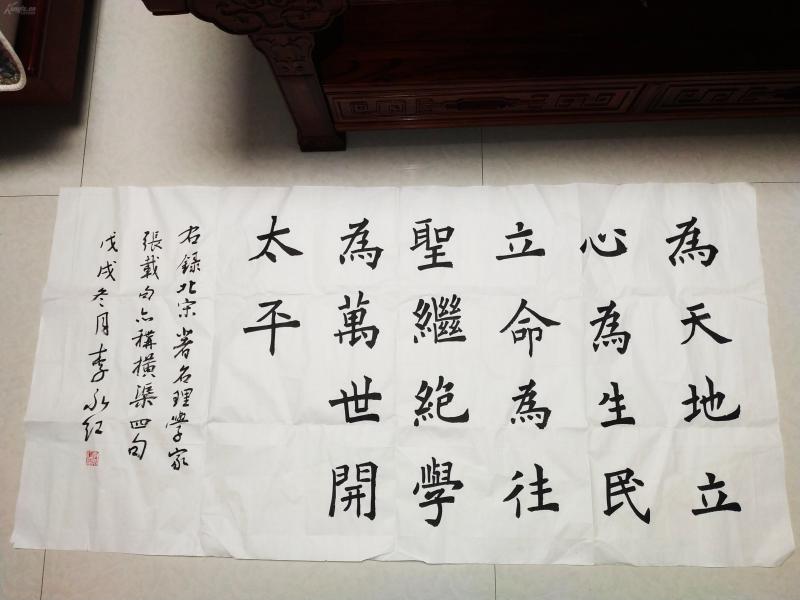 為天地立
心為生民
立命為往
聖繼絕學
為萬世開
太平
右錄北宋著名理學家
張載句亦稱橫渠四句
戊戌冬月李永红